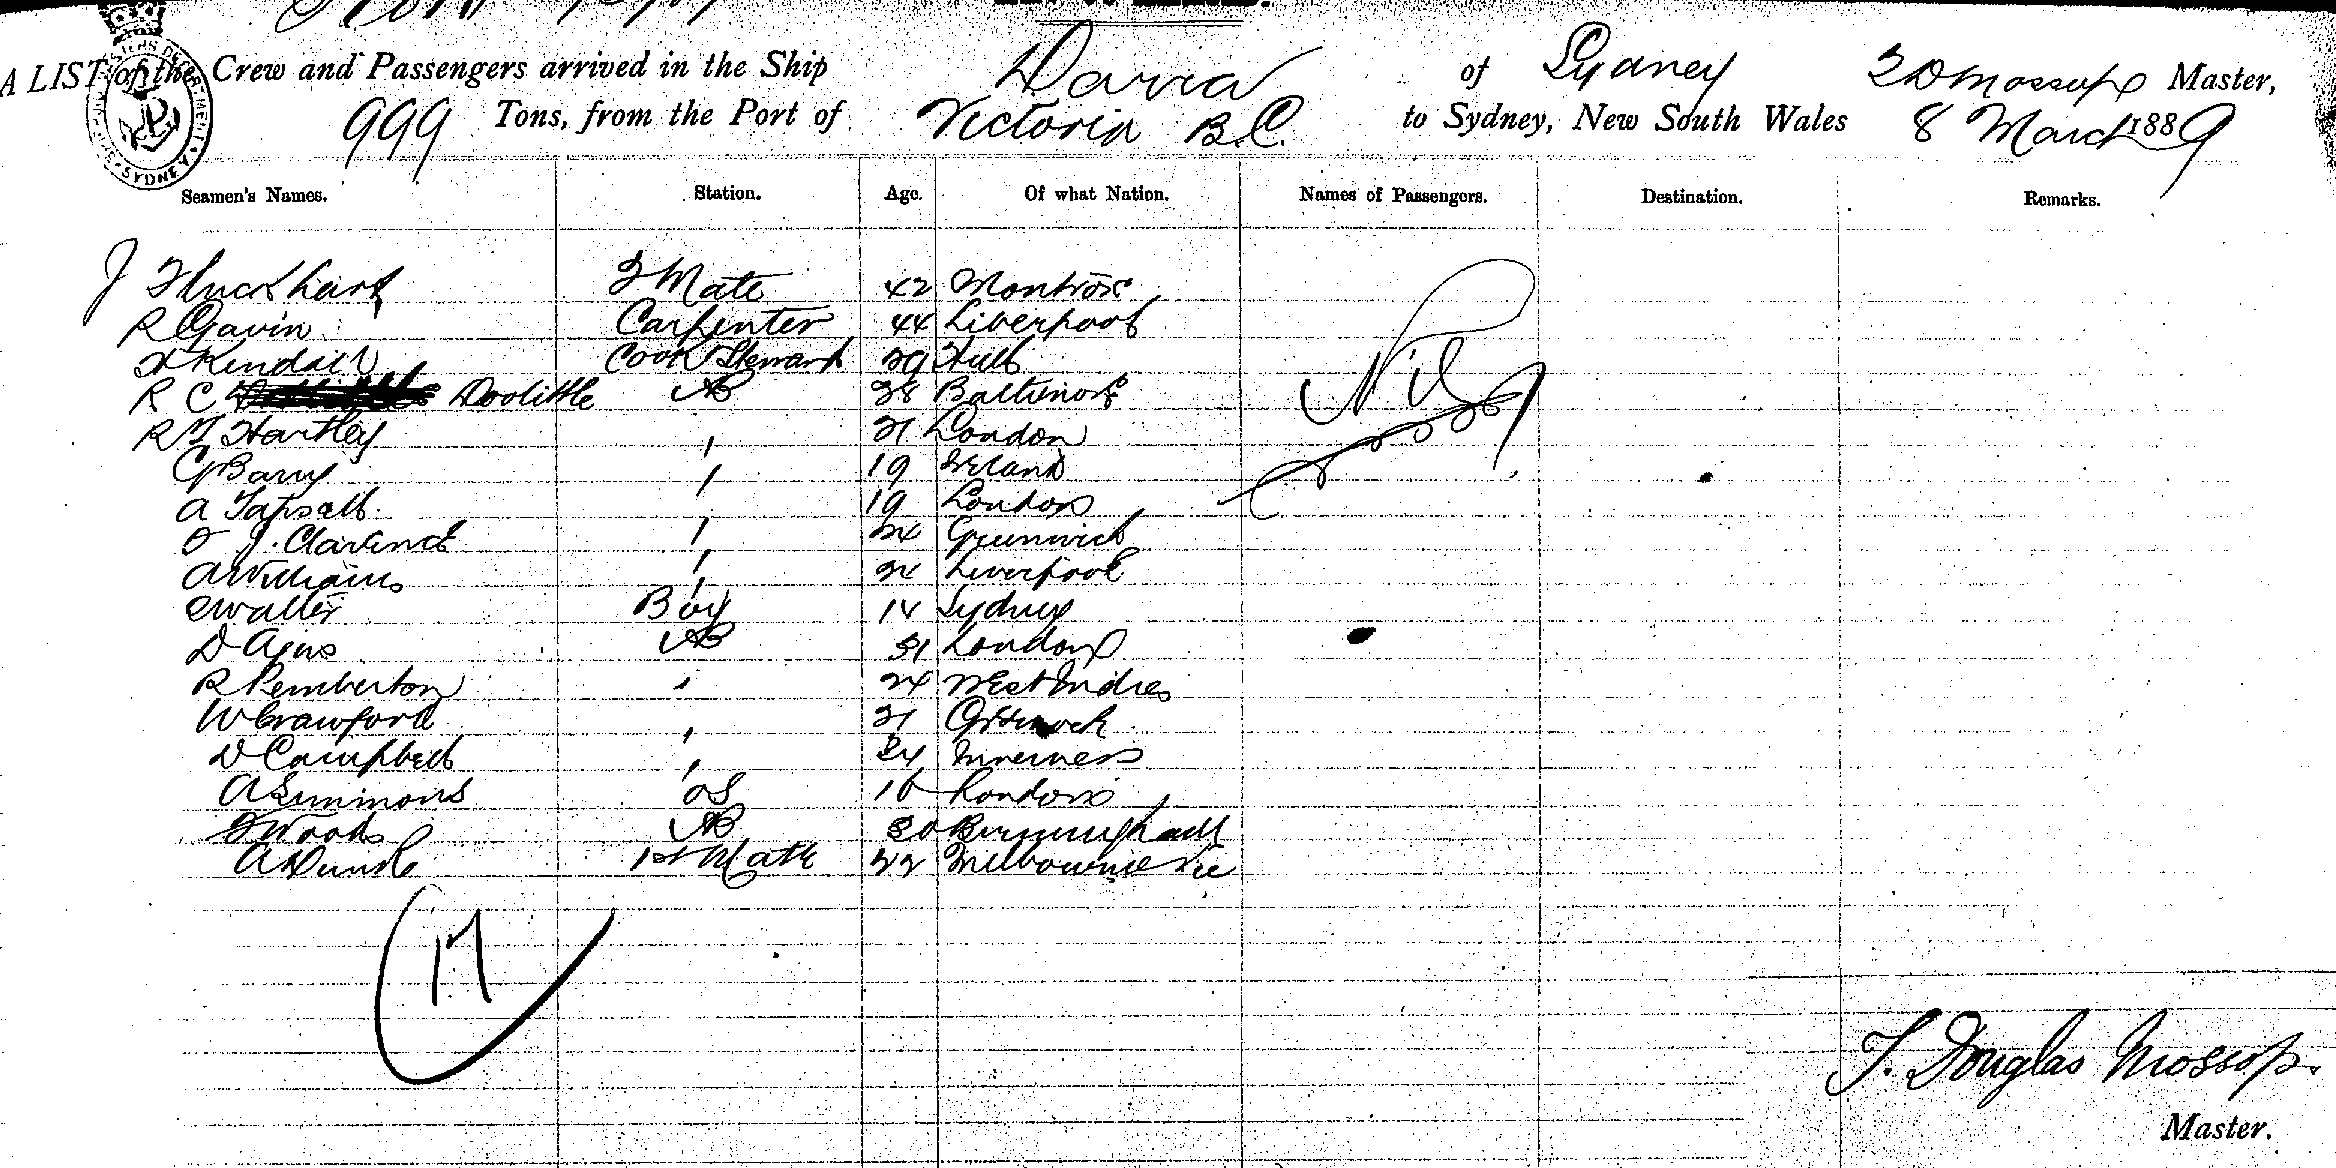 A LIST of the Crew and Passengers arrived in the Ship Darra of Sydney Mossop Master,
999 Tons, from the Port of Victoria B.C. to Sydney, New South Wales 8 March 1889
Seamen's Names. Station. Age. Of what Nation. Names of Passengers. Destination. Remarks.
J Mate 42 Montrose
R Gavin Carpenter 44 Liverpool
Kendall Cook Steward 29 Hull
R C Doolittle AB 38 Baltimore
R T Hartley , 21 London
G Barry , 19 Ireland
A Tapsall. 19 London
O J. Clarence , 24 Greenwich
A Williams , 24 Liverpool
Walter Boy 14 Sydney
D AB 31 London
R Pemberton , 24 West Indies
W Crawford , 21 Greenock
D Campbell , 24 Inverness
A Simmons OS 16 London
Woods AB 30 Birmingham
A 1st Mate 22 Melbourne Vic
Nil
17
T. Douglas Mossop.
Master.